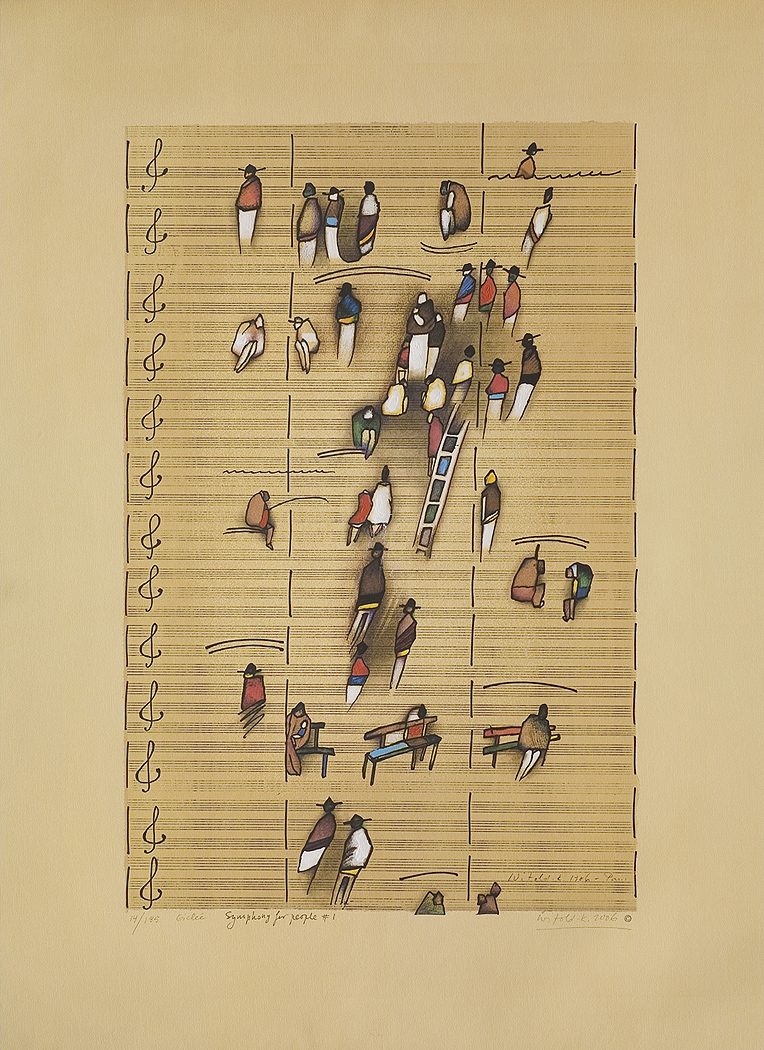 Witold-K 1986 - Paris
14/195 Giclée Symphony for people #1 Witold-K. 2006 ©